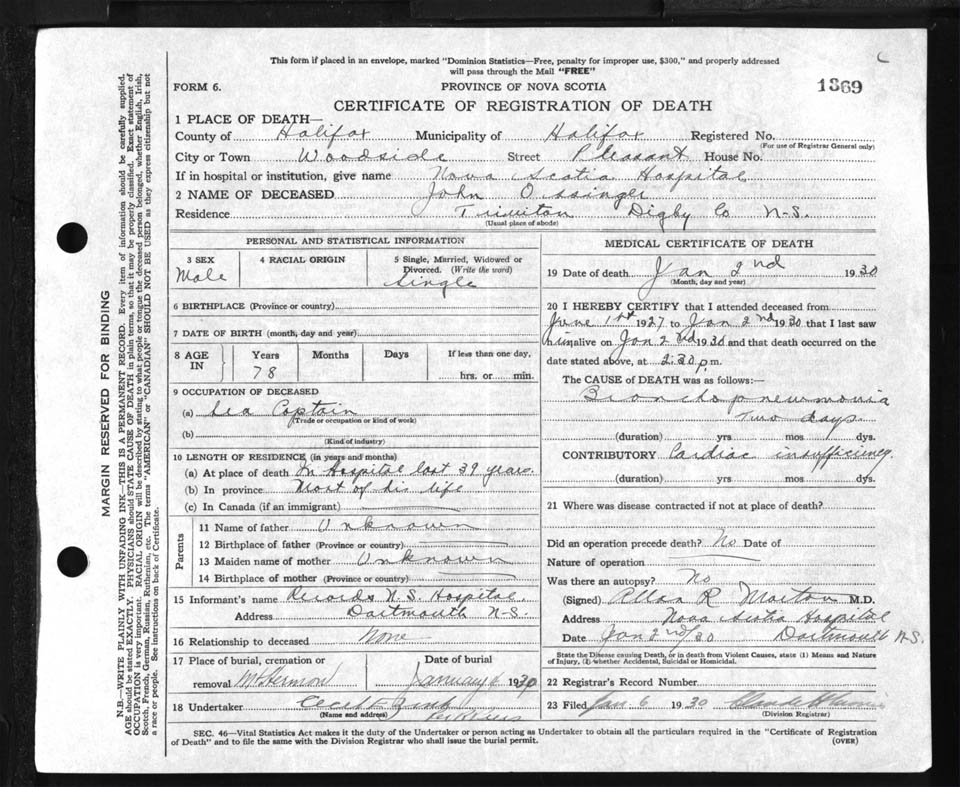 This form if placed in an envelope, marked "Dominion Statistics—Free, penalty for improper use, $300," and properly addressed
will pass through the Mail "FREE"
1369
FORM 6.
PROVINCE OF NOVA SCOTIA
CERTIFICATE OF REGISTRATION OF DEATH
1 PLACE OF DEATH—
County of Halifax Municipality of Halifax Registered No.
(For use of Registrar General only)
City or Town Woodside Street Pleasant House No.
If in hospital or institution, give name Nova Scotia Hospital
2 NAME OF DECEASED John Ossinger
Residence Tiverton Digby Co N-S.
(Usual place of abode)
PERSONAL AND STATISTICAL INFORMATION
3 SEX
Male
4 RACIAL ORIGIN
5 Single, Married, Widowed or
Divorced. (Write the word)
Single
6 BIRTHPLACE (Province or country)
7 DATE OF BIRTH (month, day and year)
8 AGE IN
Years
Months
Days
If less than one day,
78
hrs. or min.
9 OCCUPATION OF DECEASED
(a) Sea Captain
(Trade or occupation or kind of work)
(b)
(Kind of industry)
10 LENGTH OF RESIDENCE (in years and months)
(a) At place of death In Hospital last 39 years.
(b) In province Most of his life
(c) In Canada (if an immigrant)
Parents
11 Name of father Unknown
12 Birthplace of father (Province or country)
13 Maiden name of mother Unknown
14 Birthplace of mother (Province or country)
15 Informant's name Records N.S. Hospital.
Address Dartmouth N-S.
16 Relationship to deceased None
17 Place of burial, cremation or
removal Mt Hermon
Date of burial
January 1930
18 Undertaker
(Name and address)
MEDICAL CERTIFICATE OF DEATH
19 Date of death Jan 2nd 1930
(Month, day and year)
20 I HEREBY CERTIFY that I attended deceased from
June 1st 1927 to Jan 2nd 1930 that I last saw
him alive on Jan 2nd 1930 and that death occurred on the
date stated above, at 2:30 p.m.
The CAUSE of DEATH was as follows:—
Bronchopneumonia
Two days
(duration) yrs mos dys.
CONTRIBUTORY Cardiac insufficiency.
(duration) yrs. mos dys.
21 Where was disease contracted if not at place of death?
Did an operation precede death? No Date of
Nature of operation
Was there an autopsy? No
(Signed) Allan R Morton M.D.
Address Nova Scotia Hospital
Date Jan 2nd/30 Dartmouth N-S.
State the Disease causing Death, or in death from Violent Causes, state (1) Means and Nature
of Injury, (2) whether Accidental, Suicidal or Homicidal.
22 Registrar's Record Number
23 Filed Jan 6 1930
(Division Registrar)
SEC. 46—Vital Statistics Act makes it the duty of the Undertaker or person acting as Undertaker to obtain all the particulars required in the "Certificate of Registration
of Death" and to file the same with the Division Registrar who shall issue the burial permit.
(OVER)
MARGIN RESERVED FOR BINDING
N.B.—WRITE PLAINLY WITH UNFADING INK—THIS IS A PERMANENT RECORD. Every item of information should be carefully supplied.
AGE should be stated EXACTLY. PHYSICIANS should STATE CAUSE OF DEATH in plain terms, so that it may be properly classified. Exact statement of
OCCUPATION is very important. RACIAL ORIGIN will be described by stating to what people or tongue the deceased person belonged, whether English, Irish,
Scotch, French, German, Russian, Ruthenian, etc. The terms "AMERICAN" or "CANADIAN" SHOULD NOT BE USED as they express citizenship but not
a race or people. See instructions on back of Certificate.